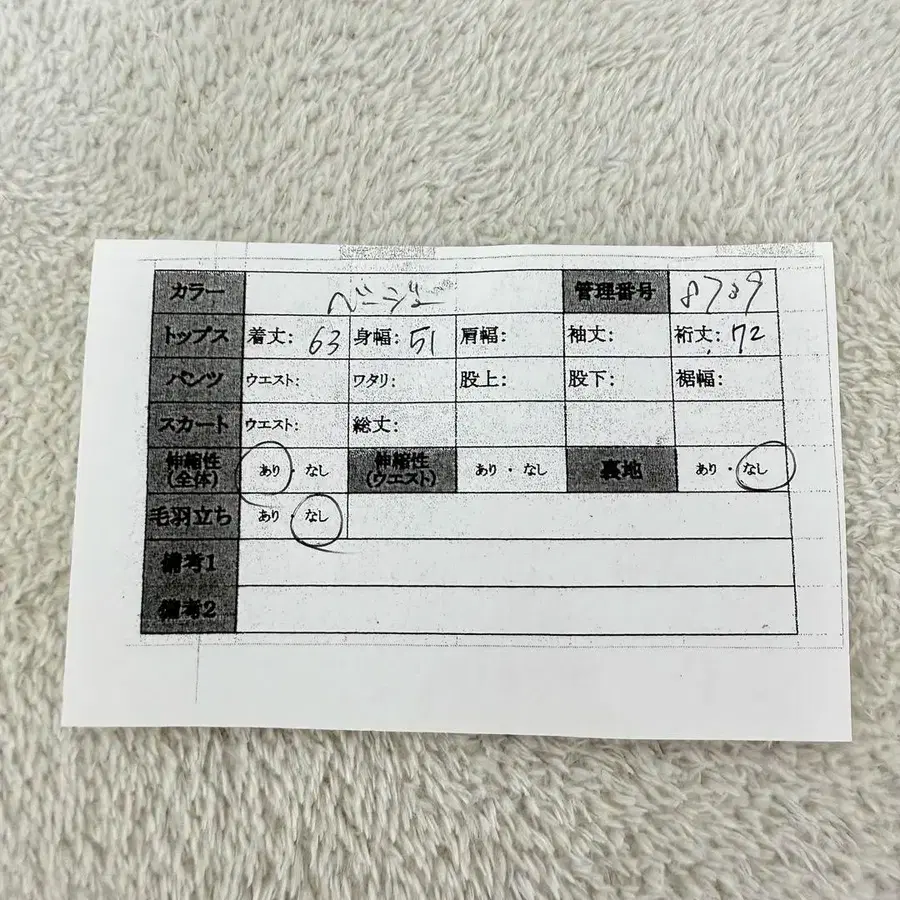 カラー ベージュ 管理番号 8739
トップス 着丈: 63 身幅: 51 肩幅: 袖丈: 裄丈: 72
パンツ ウエスト: ワタリ: 股上: 股下: 裾幅:
スカート ウエスト: 総丈:
伸縮性(全体) あり・なし 伸縮性(ウエスト) あり・なし 裏地 あり・なし
毛羽立ち あり・なし
備考1
備考2